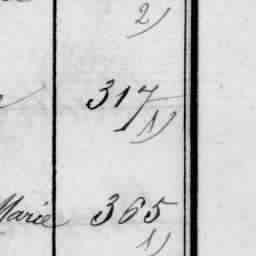 2)
317
1)
Marie 365
1)